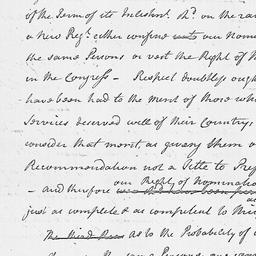 of the Term of its Enlistmt. 2d. on the rai
a new Regt. either confine our Nomi
the same Persons or vest the Right of N
in the Congress – Respect doubtless ough
have been had to the merit of those who
Services deserved well of their Country,
consider that merit as giving them a
Recommendation not a Title to Pref
our Right of Nominatio
– and therefore
just as complete & as competent to their
as to the Probability of
the same Persons